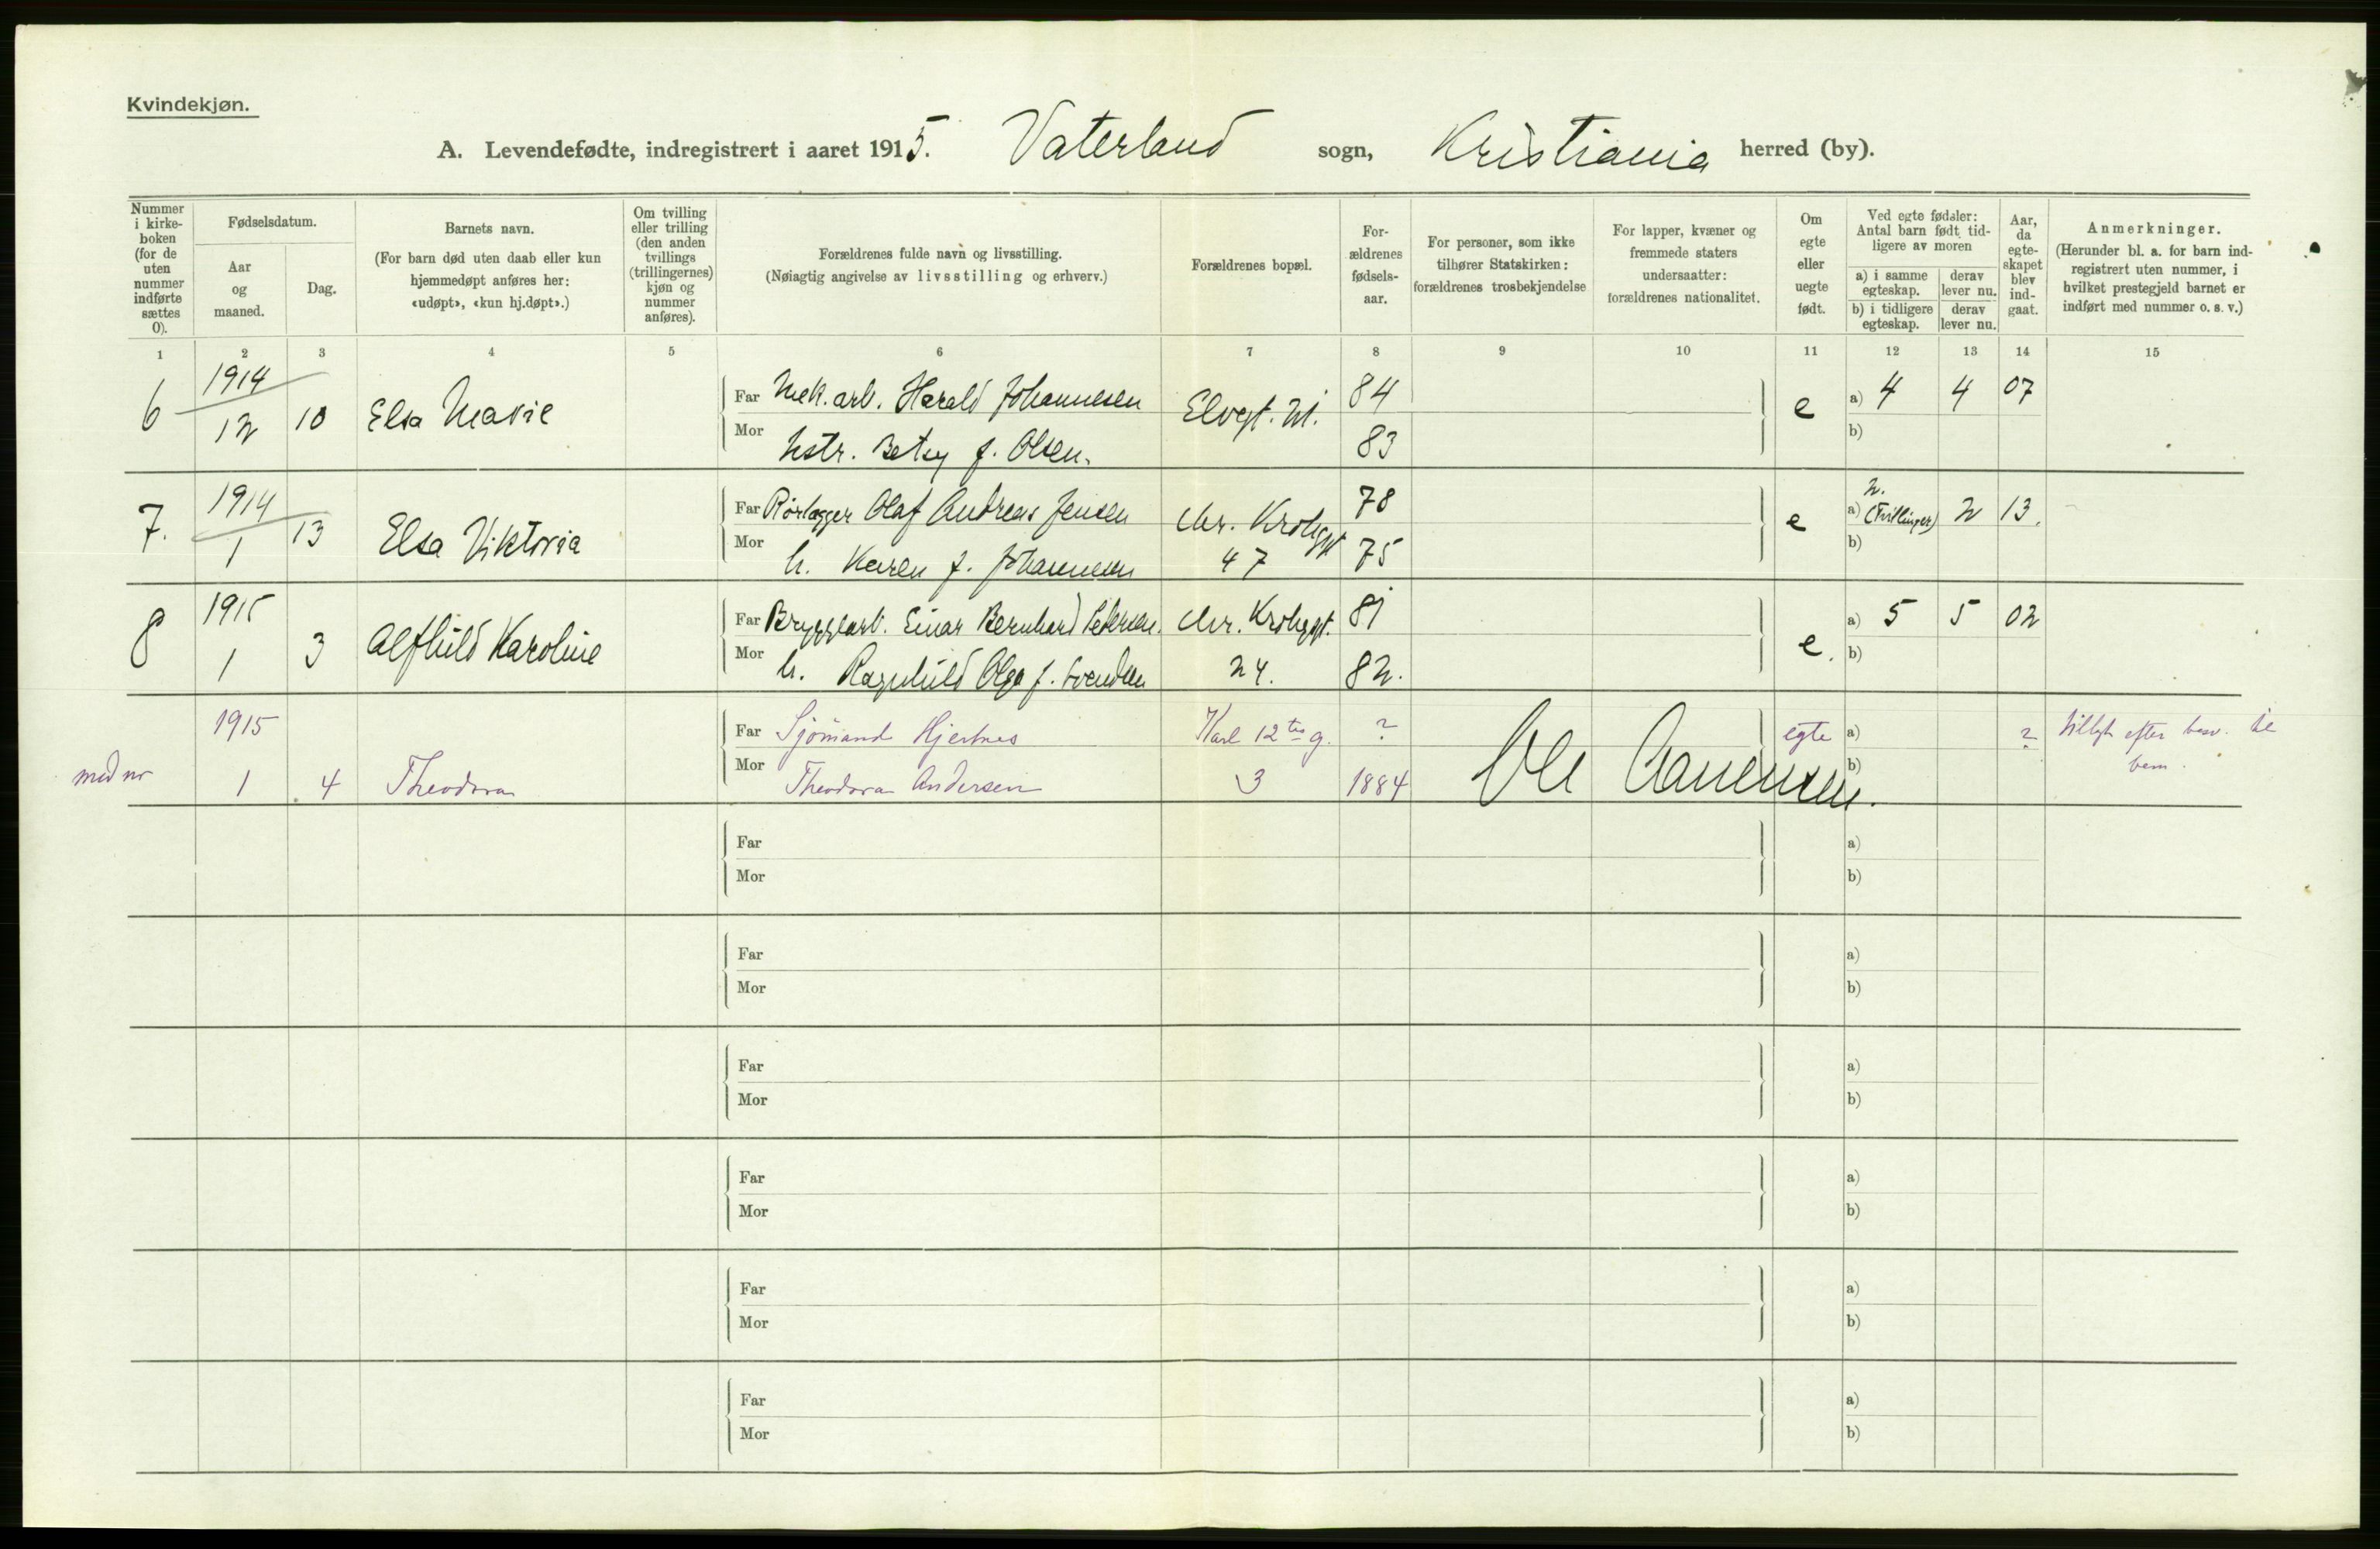 Kvindekjøn.
A. Levendefødte, indregistrert i aaret 1915. Vaterland sogn, Kristiania herred (by).
Nummer i kirke-boken (for de uten nummer indførte sættes 0).
Fødselsdatum.
Aar og maaned.
Dag.
Barnets navn.
(For barn død uten daab eller kun hjemmedøpt anføres her: «udøpt», «kun hj.døpt».)
Om tvilling eller trilling (den anden tvillings (trillingernes) kjøn og nummer anføres).
Forældrenes fulde navn og livsstilling.
(Nøiagtig angivelse av livsstilling og erhverv.)
Forældrenes bopæl.
For-ældrenes fødsels-aar.
For personer, som ikke tilhører Statskirken: forældrenes trosbekjendelse
For lapper, kvæner og fremmede staters undersaatter: forældrenes nationalitet.
Om egte eller uegte født.
Ved egte fødsler: Antal barn født tid-ligere av moren
a) i samme egteskap.
derav lever nu.
b) i tidligere egteskap.
derav lever nu.
Aar, da egte-skapet blev ind-gaat.
Anmerkninger.
(Herunder bl. a. for barn ind-registrert uten nummer, i hvilket prestegjeld barnet er indført med nummer o. s. v.)
1 2 3 4 5 6 7 8 9 10 11 12 13 14 15
6 1914 12 10 Elsa Marie
Far Mek. arb. Harald Johannesen Elvegt. 84 e a) 4 4 07
Mor Hstr. Betsy f. Olsen. 83 b)
7. 1914 1 13 Elsa Viktoria
Far Rørlægger Olaf Andreas Jensen Chr. Krohgsgt 78 e a) 2. (Tvillinger) 2 13.
Mor h. Karen f. Johannesen 47 75 b)
8 1915 1 3 Alfhild Karoline
Far Bryggearb. Einar Bernhard Petersen. Chr. Krohgsgt. 81 e. a) 5 5 02
Mor h. Ragnhild Olga f. Svendsen 24. 82. b)
med nr 1915 1 4 Theodora
Far Sjömand Hjertnes Karl 12tes g. ? egte a) ? tillagt efter
Mor Theodora Andersen 3 1884 b)
Ole
Far a)
Mor b)
Far a)
Mor b)
Far a)
Mor b)
Far a)
Mor b)
Far a)
Mor b)
Far a)
Mor b)